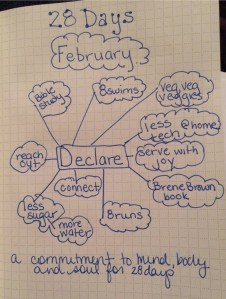 28 Days
February
Bible
study
8 swims
veg veg
veggies
less @home
tech
reach
out
Declare
serve with
joy
connect
Brene Brown
book
less
sugar
more
water
8 runs
a commitment to mind, body
and soul for 28 days